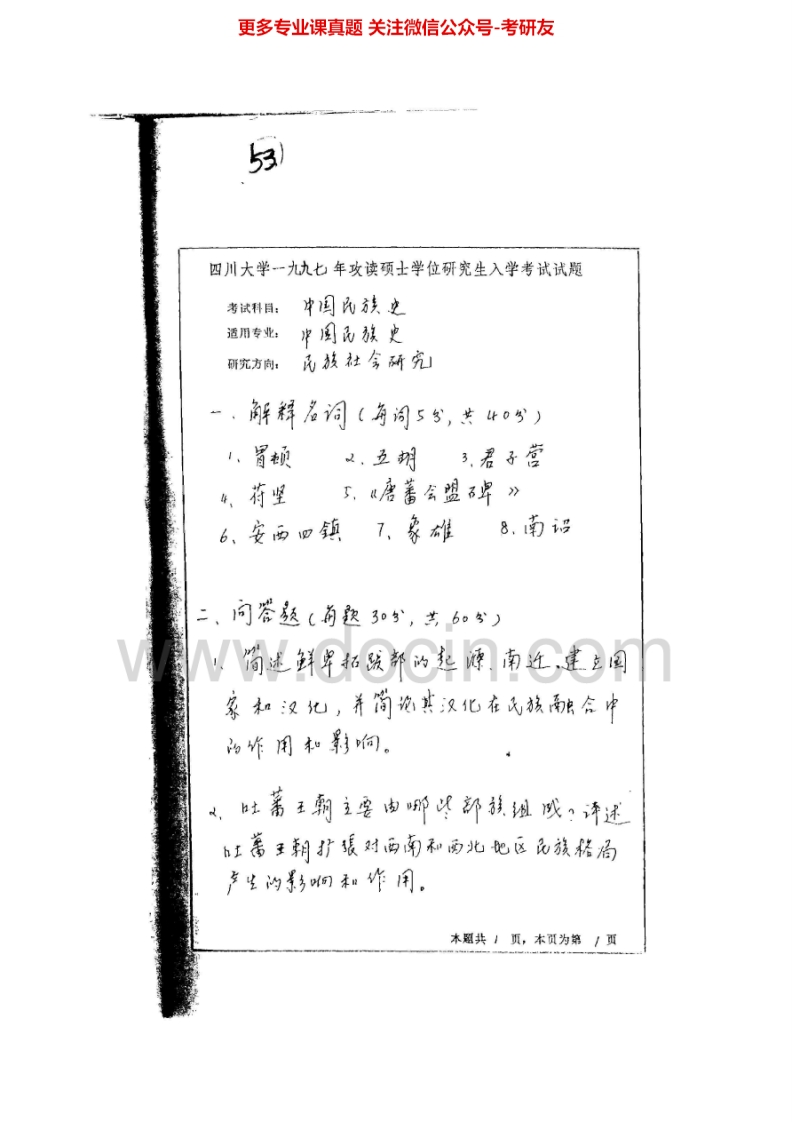 更多专业课真题 关注微信公众号-考研友
53
四川大学一九九七年攻读硕士学位研究生入学考试试题
考试科目：中国民族史
适用专业：中国民族史
研究方向：民族社会研究
一、解释名词（每词5分，共40分）
1、冒顿 2、五胡 3、君子营
4、苻坚 5、《唐蕃会盟碑》
6、安西四鎮 7、象雄 8、南诏
二、问答题（每题30分，共60分）
www.docin.com
1、简述鲜卑拓跋部的起源、南迁、建立国
家和汉化，并简论其汉化在民族融合中
的作用和影响。
2、吐蕃王朝主要由哪些部族组成？评述
吐蕃王朝扩張对西南和西北地区民族格局
产生的影响和作用。
本题共 1 页，本页为第 1 页